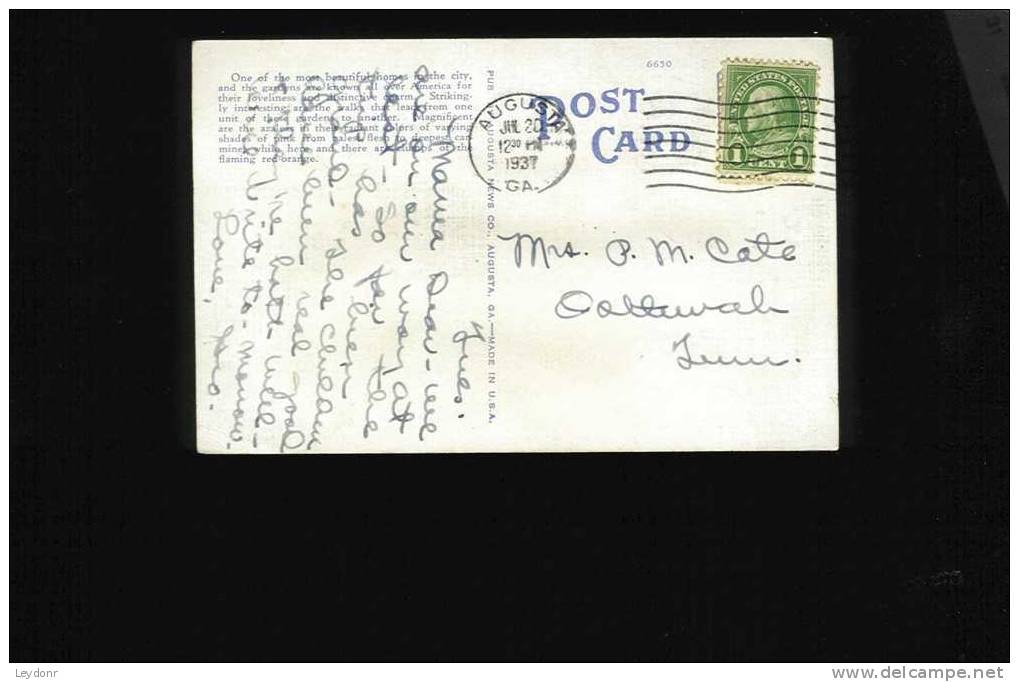 6650
One of the most beautiful homes in the city,
and the gardens are known all over America for
their loveliness and distinctive charm. Striking-
ly interesting are the walks that lead from one
unit of the gardens to another. Magnificent
are the azaleas in their radiant colors of varying
shades of pink from palest flesh to deepest car-
mine, while here and there are clumps of the
flaming red-orange.
PUB AUGUSTA NEWS CO., AUGUSTA, GA.—MADE IN U.S.A.
POST
CARD
AUGUSTA
JUL 20
12 30 PM
1937
GA.
UNITED STATES POSTAGE
1 CENT 1
Mrs. P. M. Cate
Ooltewah
Tenn.
Tues.
Mama Dear - we
are on our way at
last - So far the
has been
grand - The children
have been real good
They both
write to-morrow.
Love,
Leydonr
www.delcampe.net